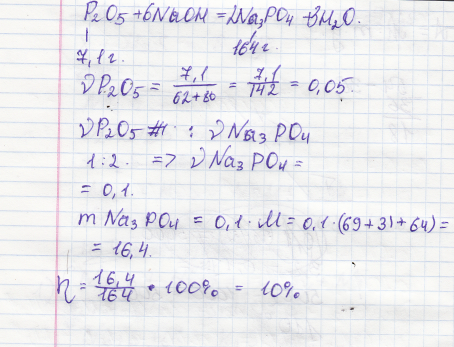 P₂O₅ + 6NaOH = 2Na₃PO₄ + 3H₂O.
7,1 г. 164 г.
νP₂O₅ = 7,1/(62+80) = 7,1/142 = 0,05.
νP₂O₅ : νNa₃PO₄
1:2. => νNa₃PO₄ =
= 0,1.
m Na₃PO₄ = 0,1 · M = 0,1 · (69+31+64) =
= 16,4.
η = 16,4/164 · 100% = 10%